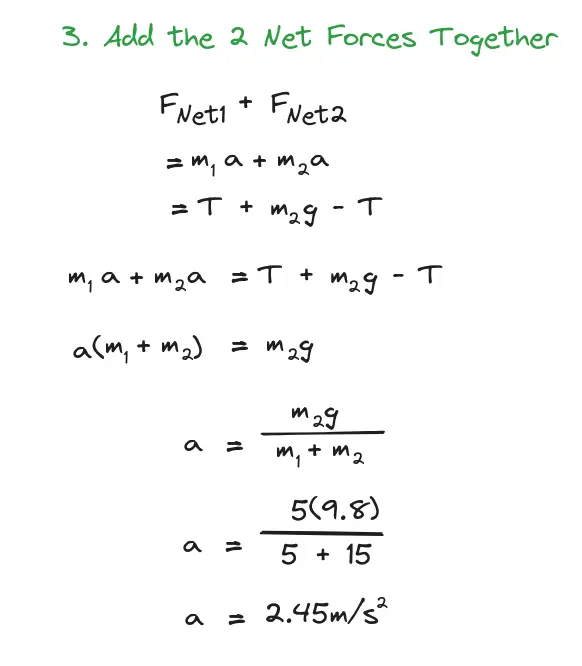 3. Add the 2 Net Forces Together
F_Net1 + F_Net2
= m₁a + m₂a
= T + m₂g - T
m₁a + m₂a = T + m₂g - T
a(m₁ + m₂) = m₂g
a = m₂g / m₁ + m₂
a = 5(9.8) / 5 + 15
a = 2.45m/s²